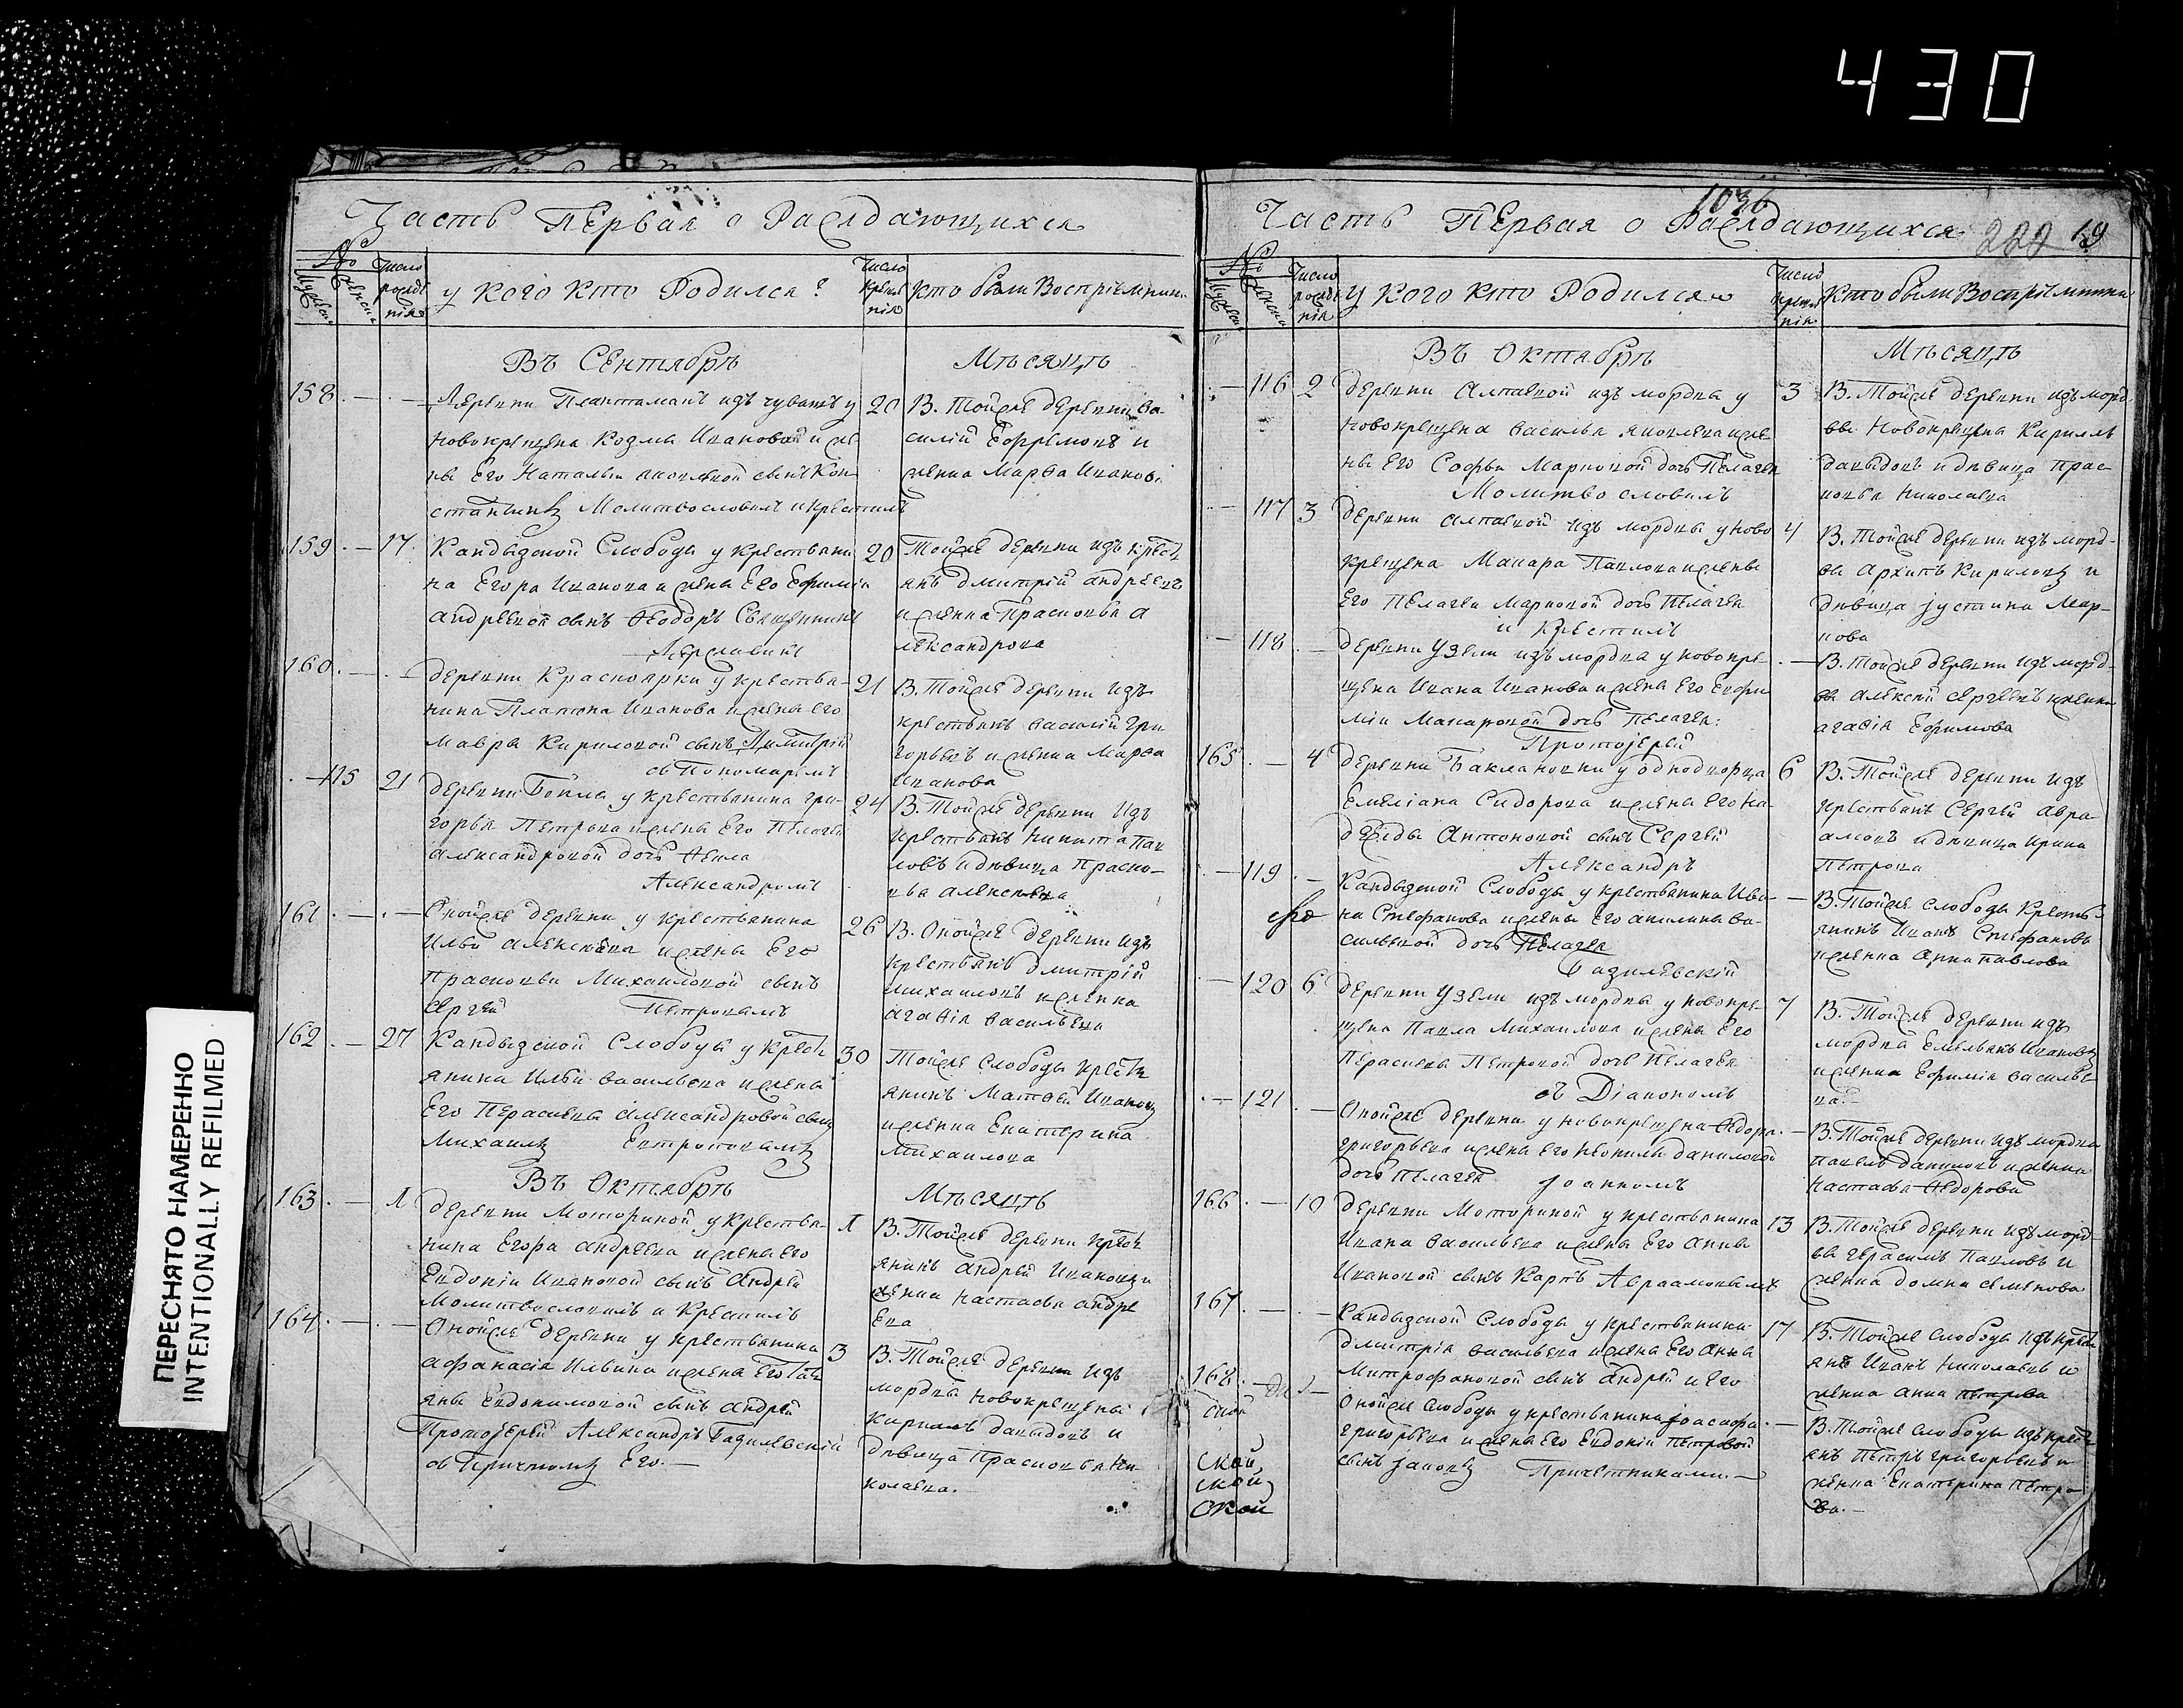 430
1036
Часть Первая о Раждающихся
№
Мужеска
Женска
Число рожде нія
у кого кто Родился?
Число креще нія
кто были Воспріемники
Въ Сентябрѣ
Мѣсяцѣ
158 . — . —
Деревни изъ чувашъ у
новокрещена Козмы Иванова и же
ны Его Натальи Яковлевой сынъ Кон
стантинъ Молитвословилъ и крестилъ
20
В. Тойже деревни Ва
силій Ефремовъ и
женка Марѳа Иванова
159 . — 17
Кандызской Слободы у крестьяни
на Егора Иванова и жены Его Ефиміи
Андреевой сынъ Ѳеодоръ Священникъ
20
Тойже деревни изъ крест
янъ Дмитрій Андреевъ
и женка Прасковья А
лександрова
160 . — . —
деревни Красноярки у крестья-
нина Платона Иванова и жены его
Мавры Кириловой сынъ Димитрій
съ Пономаремъ
21
В. Тойже деревни изъ
крестьянъ Василій Гри
горьевъ и женка Марѳа
Иванова
— 115 21
деревни у крестьянина Гри-
горья Петрова и жены Его Пелагеи
Александровой дочь Ѳекла
Александромъ
24
В. Тойже деревни изъ
крестьянъ Никита Пав
ловъ и дѣвица Праско-
вья Алексеева
161 . — . —
Оной же деревни у крестьянина
Ильи Алексеева и жены Его
Прасковьи Михаиловой сынъ
Сергей Петровымъ
26
В. Оной же деревни изъ
крестьянъ Дмитрій
Михаиловъ и женка
Агаѳія Васильева
162 . — 27
Кандызской Слободы у крест
янина Ильи Васильева и жены
Его Перасковьи Александровой сынъ
Михаилъ
30
Тойже Слободы крест
янинъ Матѳей Ивановъ
и женка Екатерина
Михаилова
Въ Октябрѣ
Мѣсяцѣ
163 . — 1
деревни Моториной у крестья-
нина Егора Андреева и жены его
Евдокіи Ивановой сынъ Андрей
Молитвословилъ и Крестилъ
1
В. Тойже деревни крест
янинъ Андрей Ивановъ и
женка Настасья Андре
ева
164 . — . —
Оной же деревни у крестьянина
Афанасія Ильина и жены Его Тат
яны Евдокимовой сынъ Андрей
Протоіерей Александръ Базилевскій
съ Причтомъ Его. —
3
В. Тойже деревни изъ
мордвы новокрещены
Кирилъ Давыдовъ и
Дѣвица Прасковья Ни
колаева.
Часть Первая о Раждающихся
222 19
№
Мужеска
Женска
Число рожде нія
у кого кто Родился
Число креще нія
Кто были Воспріемники
Въ Октябрѣ
Мѣсяцѣ
— 116 2
деревни Алпаевой изъ мордвы у
новокрещена Василья Яковлева и же
ны Его Софьи Марковой дочь Пелагея
Молитвословилъ
3
В. Тойже деревни изъ морд
вы Новокрещены Кирилъ
Давыдовъ и дѣвица Прас
ковья Николаева
— 117 3
деревни Алпаевой изъ мордвы у ново
крещена Макара Павлова и жены
Его Пелагеи Марковой дочь Пелагея
и Крестилъ
4
В. Тойже деревни изъ морд-
вы Архипъ Кириловъ и
Дѣвица Іустина Мар-
кова
— 118 . —
деревни Узели изъ мордвы у новокре
щена Ивана Иванова и жены Его Ефи
міи Макаровой дочь Пелагея:
Протоіерей
. —
В. Тойже деревни изъ морд-
вы Алексей Сергеевъ и женка
Агаѳія Ефимова
165 . — 4
деревни Баклановки у однодворца
Емеліана Сидорова и жены Его На
дежды Антоновой сынъ Сергей
Александръ
6
В. Тойже деревни изъ
крестьянъ Сергей Авра
амовъ и дѣвица Ирина
Петрова
— 119 . —
Кандызской Слободы у крестьянина Ива-
на Стефанова и жены Его Акилины Ва-
сильевой дочь Пелагея
Базилевскій
—
В. Тойже слободы Крест-
янинъ Иванъ Стефановъ
и женка Анна Павлова
— 120 6
деревни Узели изъ мордвы у новокре
щена Павла Михаилова и жены Его
Перасковьи Петровой дочь Пелагея
съ Діакономъ
7
В. Тойже деревни изъ
мордвы Емельянъ Ивановъ
и женка Ефимія Василье-
ва. —
. — 121 . —
Оной же деревни у новокрещена Ѳедора
Григорьева и жены Его Неонилы Даниловой
дочь Пелагея Іоанномъ
. —
В. Тойже деревни изъ мордвы
Павелъ Даниловъ и женка
Настасья Ѳедорова
166 . — 10
деревни Моториной у крестьянина
Ивана Васильева и жены Его Анны
Ивановой сынъ Карпъ Авраамовымъ
13
В. Тойже деревни изъ морд-
вы Герасимъ Павловъ и
женка Домна Семенова
167 . — . —
Кандызской Слободы у крестьянина
Дмитрія Васильева и жены Его Анны
Митрофановой сынъ Андрей и Его
17
В. Тойже слободы изъ крест
янъ Иванъ Николаевъ и
женка Анна Петрова
168 . —
Оной же слободы у крестьянина Іоасафа
Григорьева и жены Его Евдокіи Петровой
сынъ Іаковъ Причетниками. —
. —
В. Тойже слободы изъ крест
янъ Петръ Григорьевъ и
женка Екатерина Петро
ва. —
ской
ской
ской
ской
ПЕРЕСНЯТО НАМЕРЕННО
INTENTIONALLY REFILMED